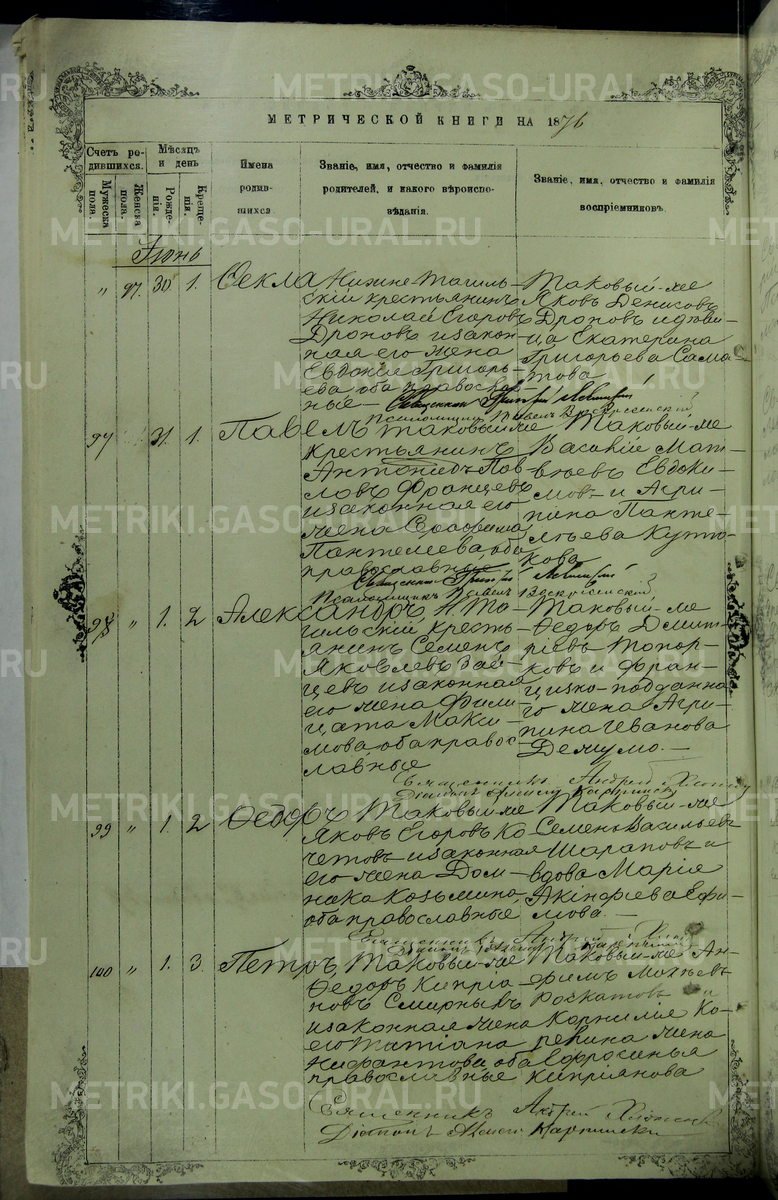 МЕТРИЧЕСКОЙ КНИГИ НА 1876
Счетъ родившихся.
Мужеска пола.
Женска пола.
Мѣсяцъ и день
Рожденія.
Крещенія.
Имена родившихся.
Званіе, имя, отчество и фамилія родителей, и какого вѣроисповѣданія.
Званіе, имя, отчество и фамилія воспріемниковъ.
Іюнь
" 97. 30 1. Ѳекла
Нижне Тагиль-
скій крестьянинъ
Николай Егоровъ
Дроновъ и закон-
ная его жена
Евдокія Григорь-
ева оба православ-
ные
Таковый-же
Яковъ Денисовъ
Дроновъ и дѣви-
ца Екатерина
Григорьева
Священник Григорій
Псаломщикъ Павелъ Воскресенскій
97 31. 1. Павелъ
таковый же
крестьянинъ
Антоній
Францевъ
и законная его
жена Серафима
Пантелеева, оба
православные
Таковый-же
Василій Мат-
вѣевъ Евдоки-
мовъ и Агри-
пина Панте-
леева
Священник Григорій
Псаломщикъ Павелъ Воскресенскій
98 " 1. 2 Александръ
Н Та-
гильскій кресть-
янинъ Семенъ
Яковлевъ Зай-
цевъ и законная
его жена Фили-
цата Макси-
мова, оба правос-
лавные
Таковый-же
Ѳедоръ Дмит-
ріевъ Топор-
ковъ и фран-
цузко-подданна-
го жена Агри-
пина Иванова
Священникъ Андрей
Діаконъ Карпинскій
99 " 1. 2 Ѳедоръ
Таковый-же
Яковъ Егоровъ Ко-
четовъ и законная
его жена Дом-
ника Козьмина,
оба православные
Таковый-же
Семенъ Васильевъ
Шараповъ и
вдова Марія
Акинфіева Ефи-
мова.
Священникъ Андрей
Діаконъ Карпинскій
100 " 1. 3. Петръ
Таковый-же
Ѳедоръ Кипріа-
новъ Смирныхъ
и законная жена
его Татіана
Нифантова, оба
православные
Таковый-же Ан-
фимъ
Раскатовъ и
Корниліе Ко-
рекина жена
Ефросинья
Кипріянова
Священникъ Андрей
Діаконъ Карпинскій
METRIKI.GASO-URAL.RU